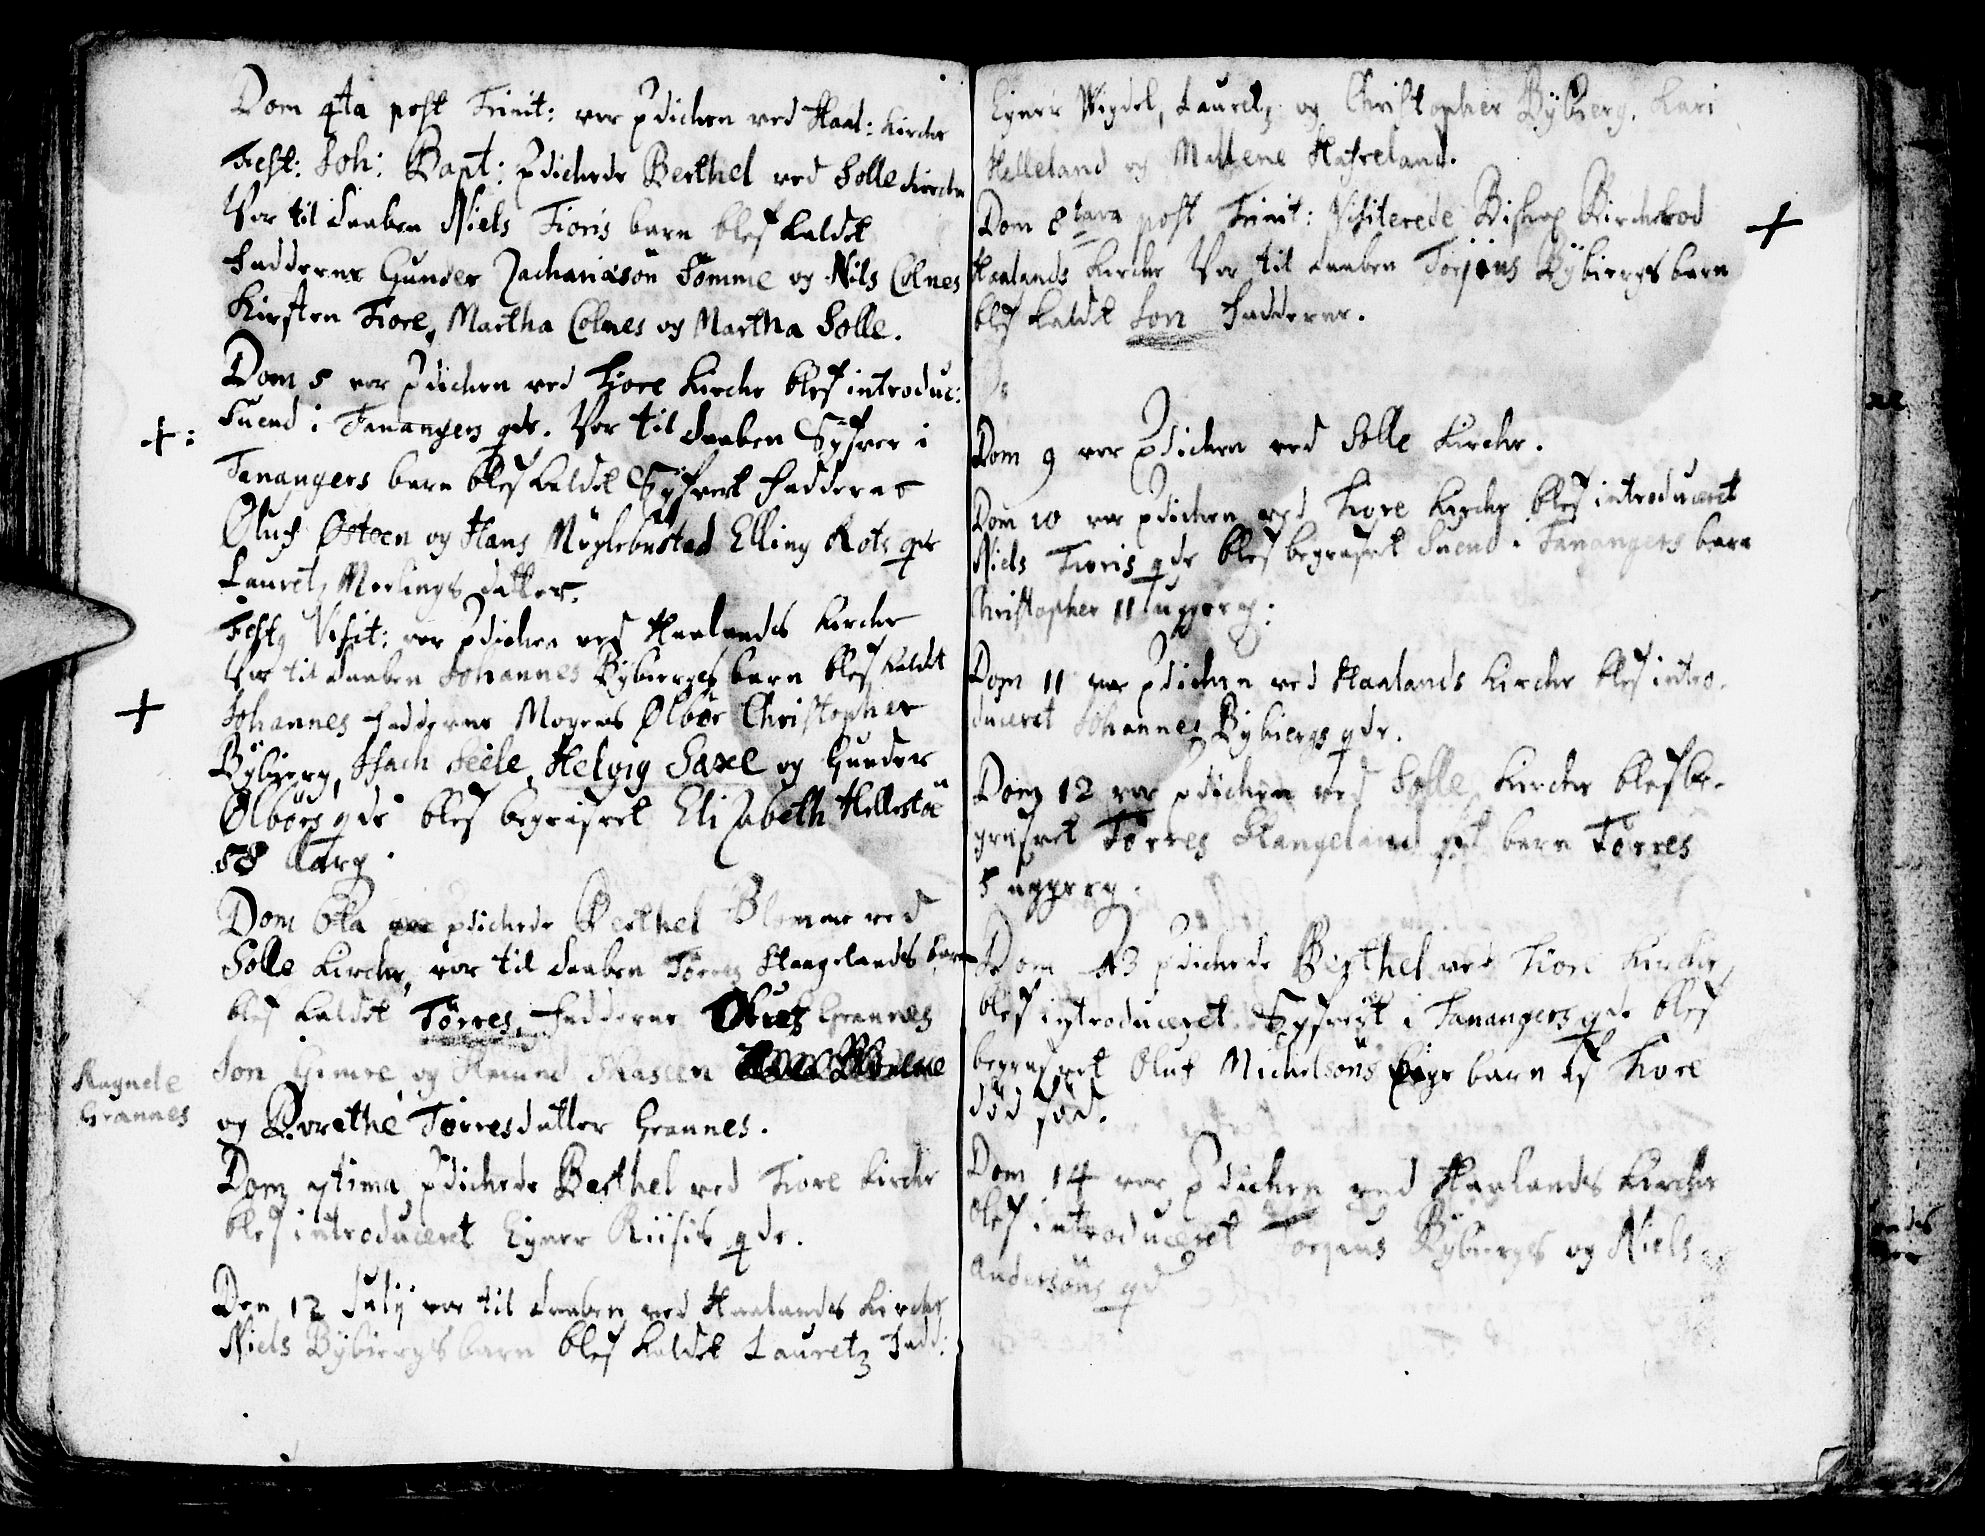 Dom 4ta post Trinit: var pdichen ved Haal: Kirche
Fest: Joh: Bapt: pdichede Berthel ved Solle Kirche
Var til daaben Niels Tioris barn blef kaldet
Faddere Gunder Zachariasön Sömme og Nils Colnes
Kirsten Tiore, Martha Colnes og Martha Solle.
Dom 5 var pdichen ved Tiore Kirche blef introduc:
+: Suend i Tanangers qde. Var til daaben Syfver i
Tanangers barn blef kaldet Syfvert Faddere
Oluf Østeen og Hans Möglebustad Elling Rots qde
Lauretz Merlings datter.
Festq Visit: var pdichen ved Haalands Kirche
Var til daaben Johannes Bybiergs barn blef kaldet
+ Johannes Faddere Mogens Ølbör Christopher
Bybierg, Isach Seele, Helvig Saxe og Gunder
Ølbörs qde blef begrafvet Elizabeth Hellestöe
58 aarg.
Dom 6ta pdichede Berthel Blomme ved
Solle Kirche, var til daaben Törres Stangelands barn
blef kaldet Törres, Faddere Oluf Grannes
Jon Gimre og Amund Skascen
Ragnele
Grannes
og Dorethe Törresdatter Grannes.
Dom 7tima pdichede Berthel ved Tiore Kirche
blef introduceret Eyner Riisis qde.
Den 12 July var til daaben ved Haalands Kirche
Niels Bybiergs barn blef kaldet Lauretz Fadd:
Eyner Wigdel, Lauretz og Christopher Bybierg, Kari
Helleland og Mallene Hafreland.
Dom 8tava post Trinit: Visiterede Bishop Birckerod +
Haalands Kirche Var til daaben Torjöns Bybiergs barn
blef kaldet Jon Faddere.
Dom 9 var pdichen ved Solle Kirche.
Dom 10 var pdichen ved Tiore Kirche blef introduceret
Niels Tioris qde blef begrafvet Suend i Tanangers barn
Christopher 11 uggerg:
Dom 11 var pdichen ved Haalands Kirche blef intro-
duceret Johannes Bybiergs qde.
Dom 12 var pdichen ved Solle Kirche blef be-
grafvet Törres Stangeland sit barn Törres
5 uggerg.
Dom 13 pdichede Berthel ved Tiore Kirche,
blef introduceret Syfvert i Tanangers qde blef
begrafvet Oluf Michelsöns pige barn af Tiore
död föd.
Dom 14 var pdichen ved Haalands Kirche
blef introduceret Torjens Bybiergs og Niels
Andersöns qd